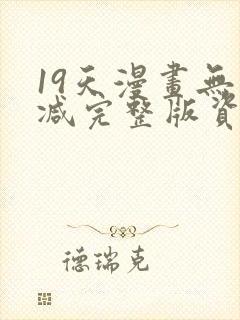 19天漫畫無
减完整版資
德瑞克